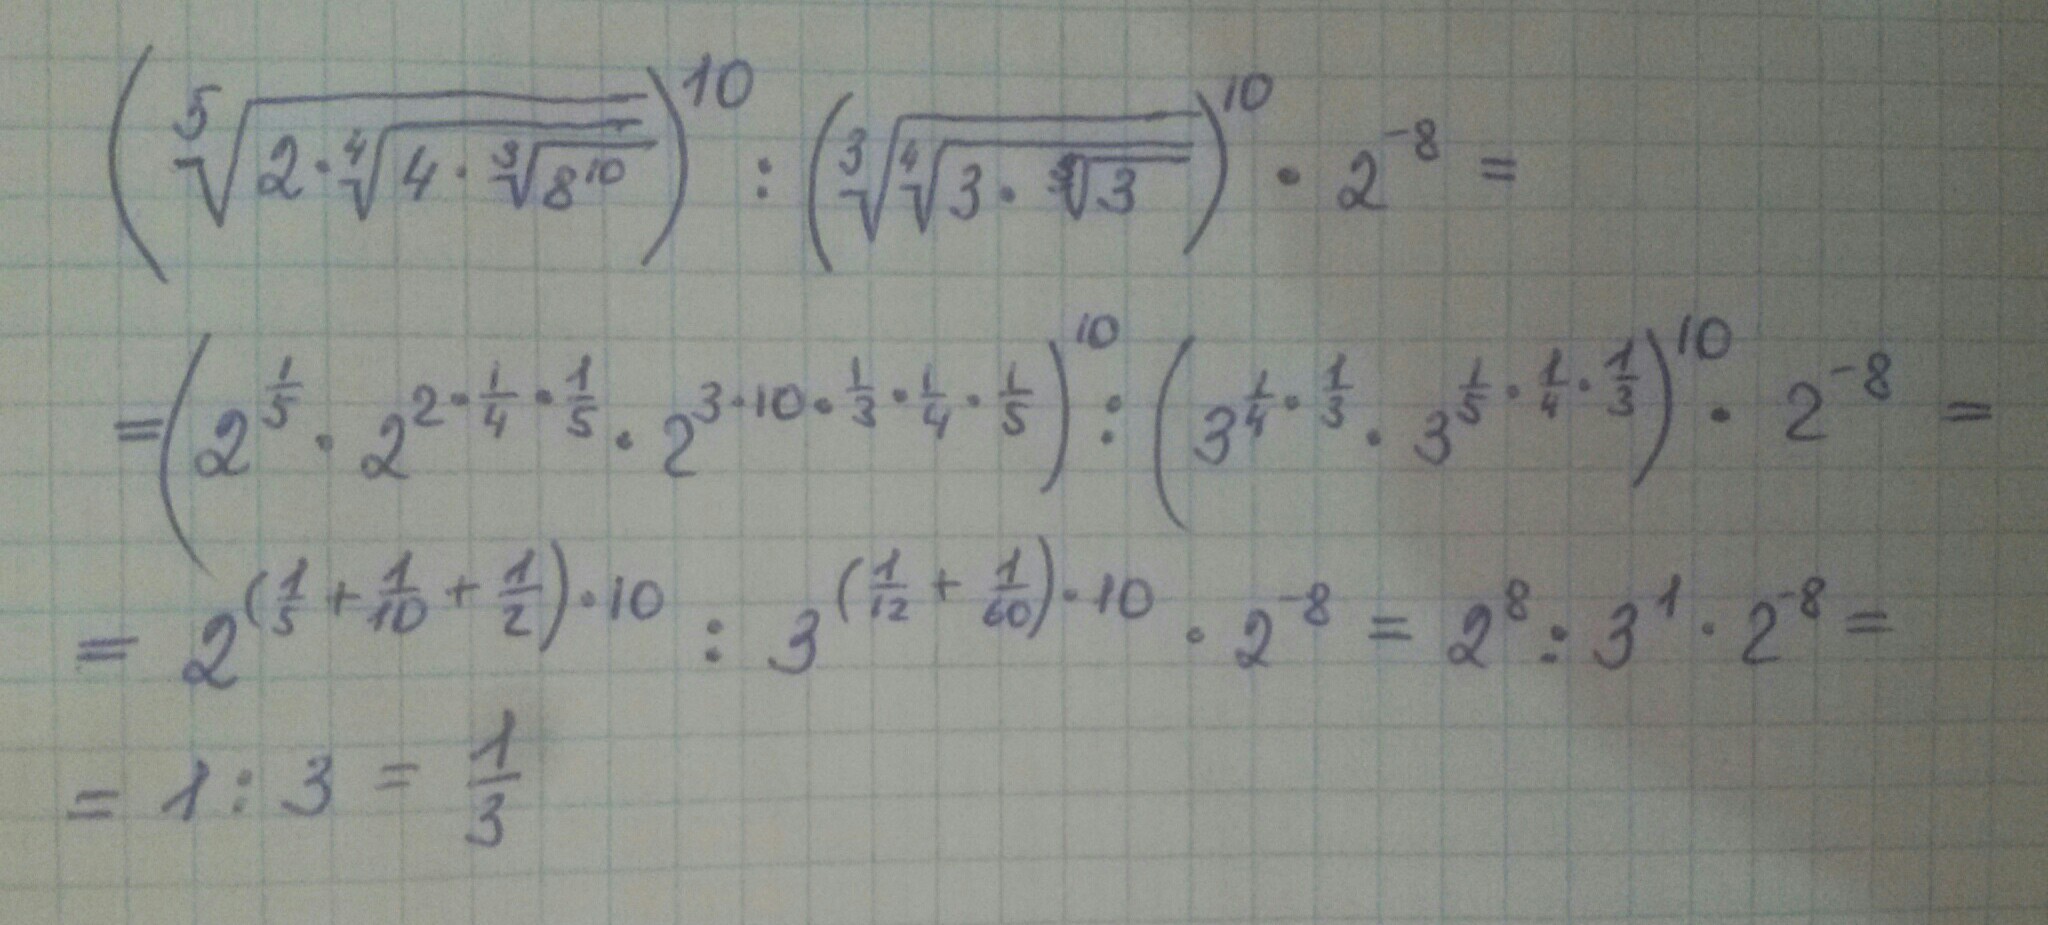 (⁵√(2·⁴√(4·³√(8¹⁰))))¹⁰ : (³√(⁴√(3·⁵√3)))¹⁰ · 2⁻⁸ =
= (2^(1/5) · 2^(2·1/4·1/5) · 2^(3·10·1/3·1/4·1/5))^10 : (3^(1/4·1/3) · 3^(1/5·1/4·1/3))^10 · 2^-8 =
= 2^((1/5+1/10+1/2)·10) : 3^((1/12+1/60)·10) · 2^-8 = 2^8 : 3^1 · 2^-8 =
= 1 : 3 = 1/3